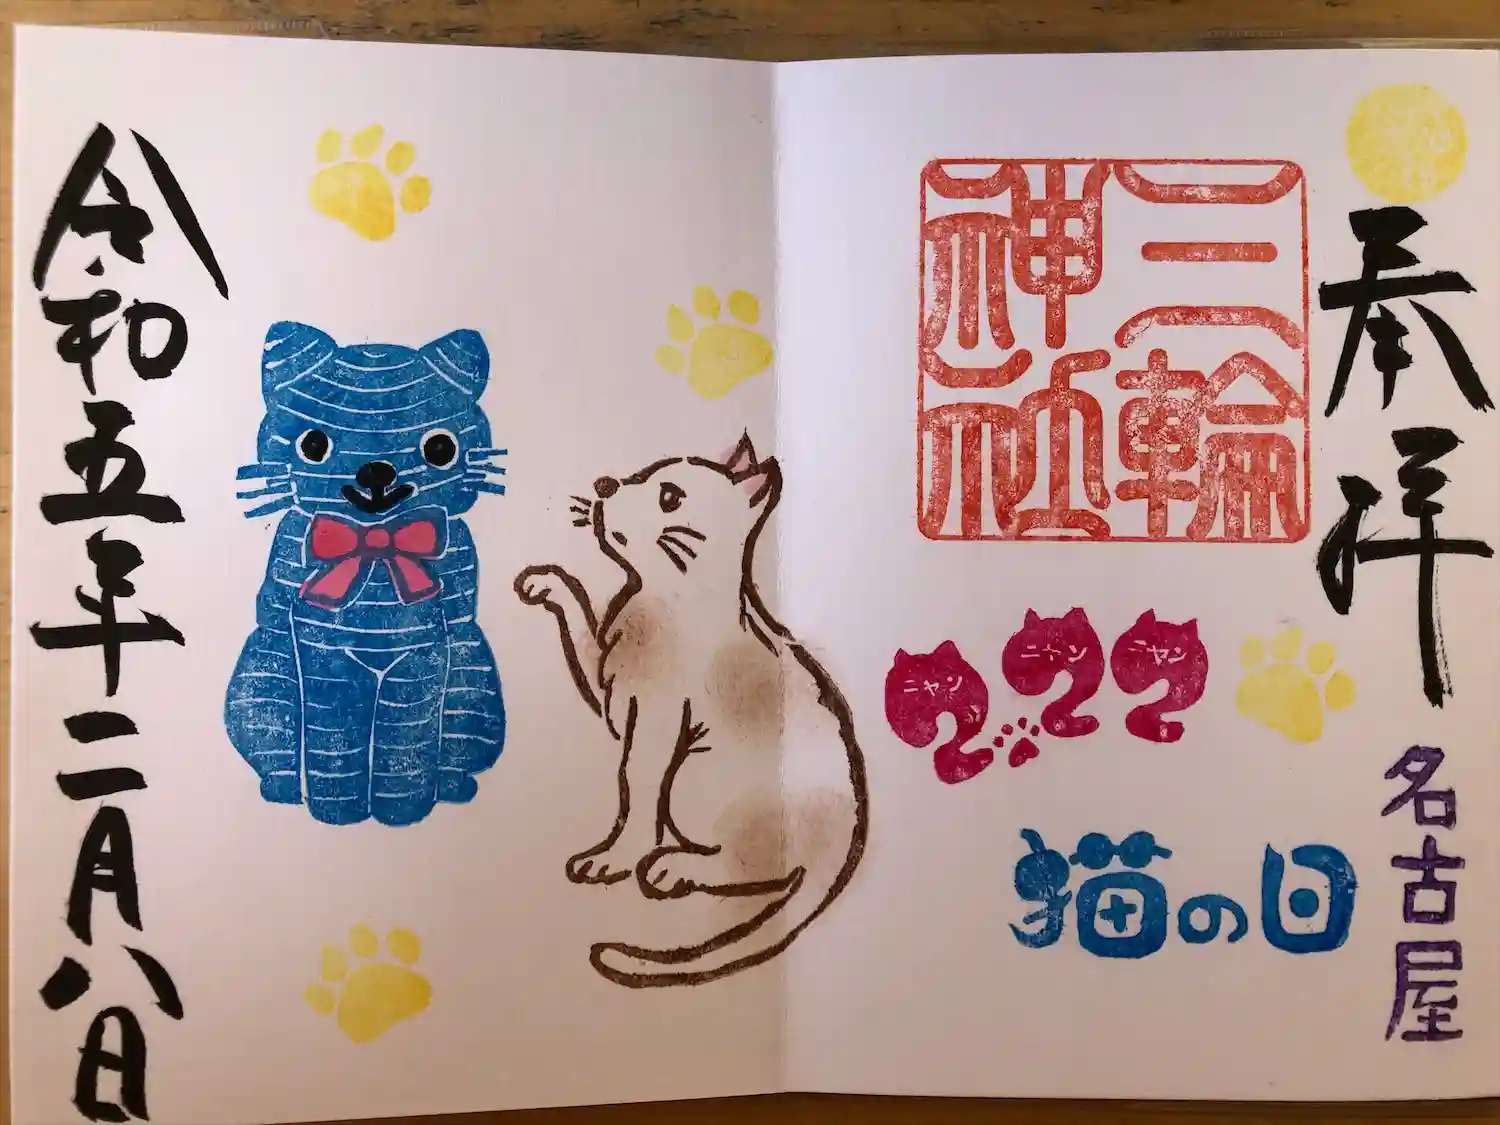 奉拝
名古屋
三輪
神社
ニャン ニャン ニャン
2.22
猫の日
令和五年二月八日